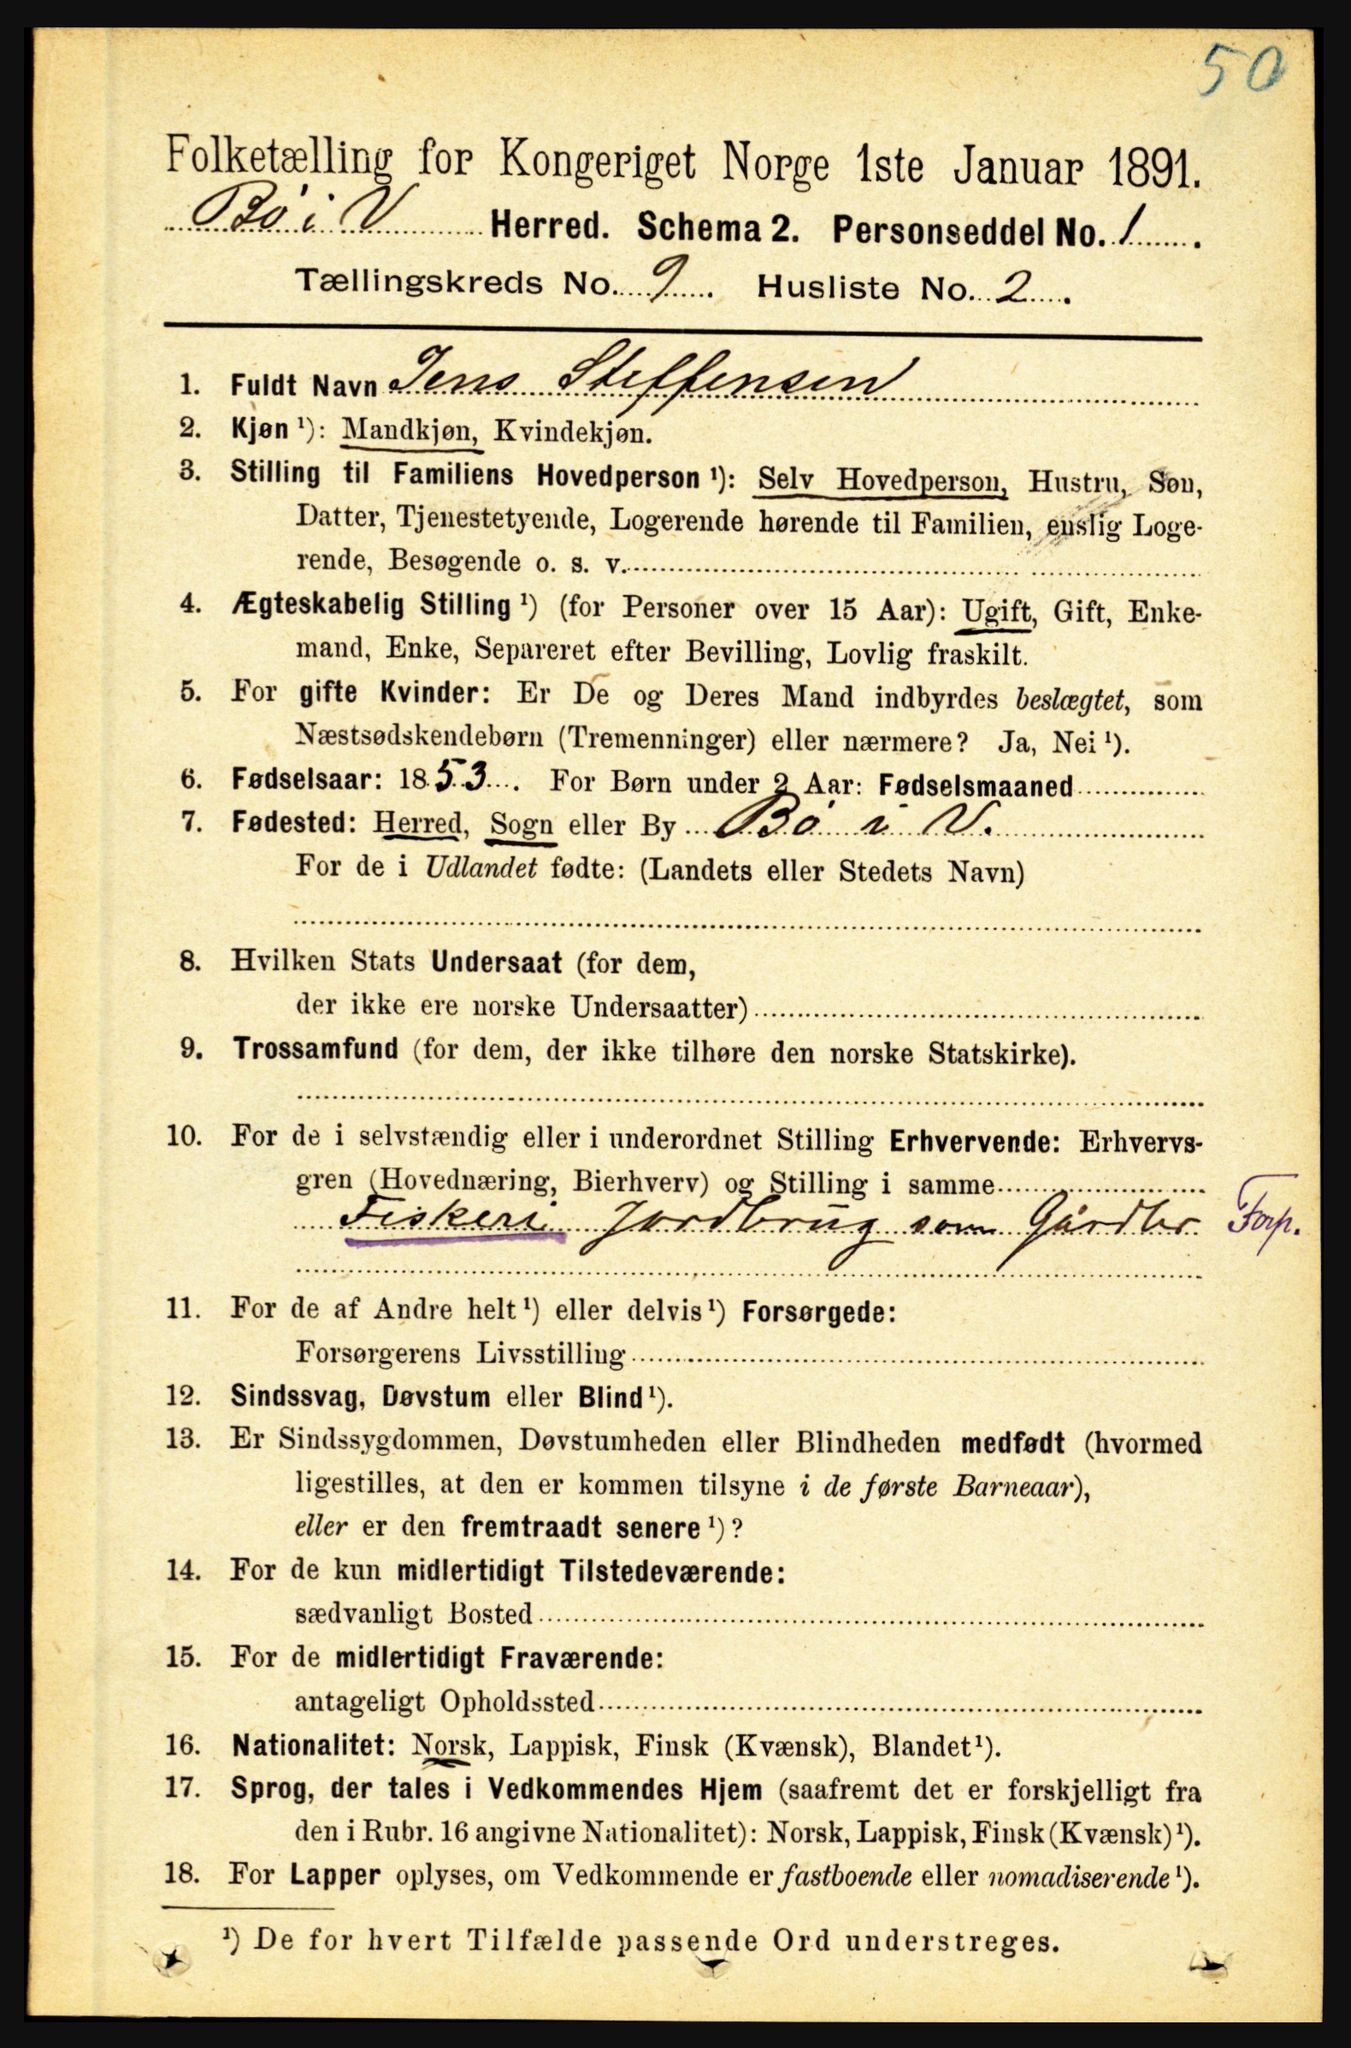 50
Folketælling for Kongeriget Norge 1ste Januar 1891.
Bö i V Herred. Schema 2. Personseddel No. 1.
Tællingskreds No. 9. Husliste No. 2.
1. Fuldt Navn Jens Steffensen
2. Kjøn ¹): Mandkjøn, Kvindekjøn.
3. Stilling til Familiens Hovedperson ¹): Selv Hovedperson, Hustru, Søn,
Datter, Tjenestetyende, Logerende hørende til Familien, enslig Loge-
rende, Besøgende o. s. v.
4. Ægteskabelig Stilling ¹) (for Personer over 15 Aar): Ugift, Gift, Enke-
mand, Enke, Separeret efter Bevilling, Lovlig fraskilt.
5. For gifte Kvinder: Er De og Deres Mand indbyrdes beslægtet, som
Næstsødskendebørn (Tremenninger) eller nærmere? Ja, Nei ¹).
6. Fødselsaar: 1853. For Børn under 2 Aar: Fødselsmaaned
7. Fødested: Herred, Sogn eller By Bö i V.
For de i Udlandet fødte: (Landets eller Stedets Navn)
8. Hvilken Stats Undersaat (for dem,
der ikke ere norske Undersaatter)
9. Trossamfund (for dem, der ikke tilhøre den norske Statskirke).
10. For de i selvstændig eller i underordnet Stilling Erhvervende: Erhvervs-
gren (Hovednæring, Bierhverv) og Stilling i samme
Fiskeri Jordbrug som Gårdbr Forp.
11. For de af Andre helt ¹) eller delvis ¹) Forsørgede:
Forsørgerens Livsstilling
12. Sindssvag, Døvstum eller Blind ¹).
13. Er Sindssygdommen, Døvstumheden eller Blindheden medfødt (hvormed
ligestilles, at den er kommen tilsyne i de første Barneaar),
eller er den fremtraadt senere ¹)?
14. For de kun midlertidigt Tilstedeværende:
sædvanligt Bosted
15. For de midlertidigt Fraværende:
antageligt Opholdssted
16. Nationalitet: Norsk, Lappisk, Finsk (Kvænsk), Blandet ¹).
17. Sprog, der tales i Vedkommendes Hjem (saafremt det er forskjelligt fra
den i Rubr. 16 angivne Nationalitet): Norsk, Lappisk, Finsk (Kvænsk) ¹).
18. For Lapper oplyses, om Vedkommende er fastboende eller nomadiserende ¹).
¹) De for hvert Tilfælde passende Ord understreges.